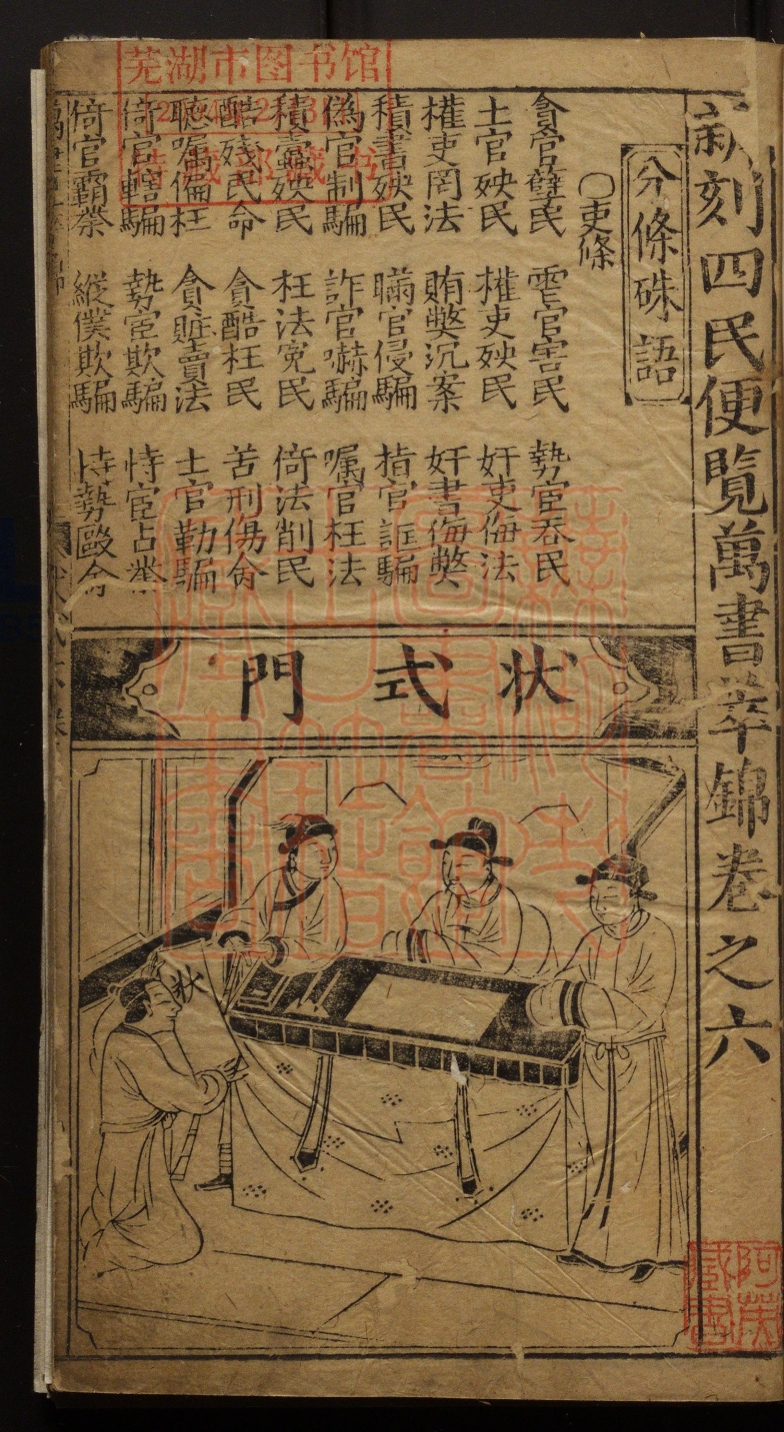 新刻四民便覧萬書萃錦卷之六
分條硃語
○吏條
貪官孽民 虐官害民 勢宦吞民
土官殃民 權吏殃民 奸吏侮法
權吏罔法 賄獘沉案 奸書侮獘
積書殃民 瞞官侵騙 指官誆騙
偽官制騙 詐官嚇騙 嘱官枉法
積蠹殃民 枉法寃民 倚法削民
酷殘民命 貪酷枉民 苦刑傷命
聽嘱偏枉 貪賍賣法 土官勒騙
倚官轄騙 勢宦欺騙 恃宦占業
倚官霸業 縱僕欺騙 恃勢毆命
状式門
状
芜湖市图书馆